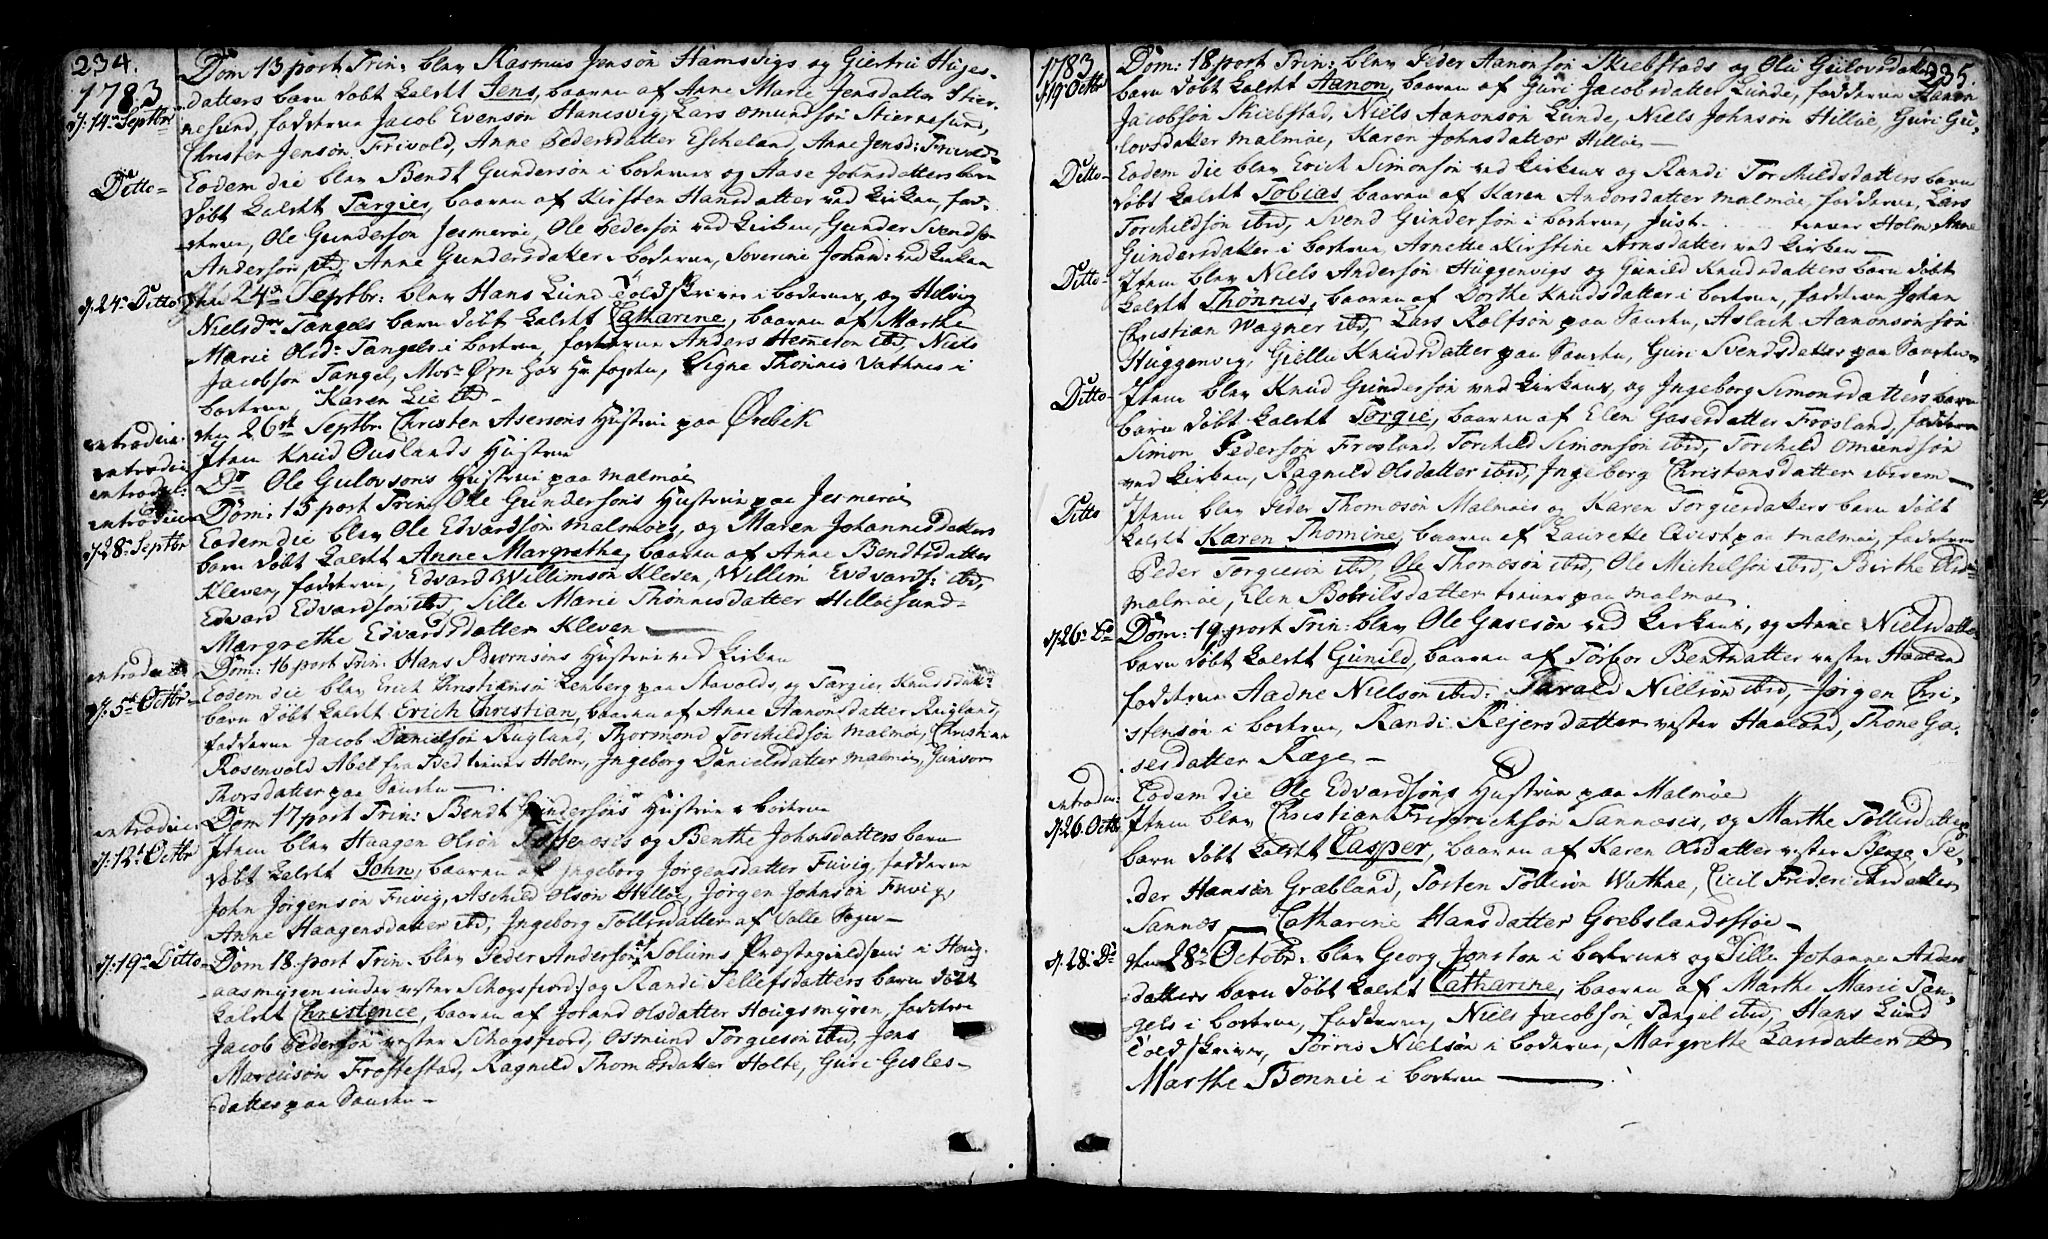 234.
1783
d: 14de Septbr
Dom 13 post Trin: blev Rasmus Jensøn Hamsvigs og Giertru Hujes-
datters barn døbt kaldet Jens, baaren af Anne Marie Jensdatter Stier-
nesund, fadderne Jacob Evensøn Hanesvig, Lars Omundsøn Stiernesund,
Christen Jensøn Frivold, Anne Pedersdatter Escheland, Anne Jensd: Frivold
Ditto-
Eodem die blev Bendt Gundersøn i boderne og Aase Johnsdatters barn
døbt kaldet Targier, baaren af Kirsten Hansdatter ved Kirken, fad-
derne, Ole Gunderson Jesmeroe, Ole Pedersøn ved Kirken, Gunder Svends
Andersøn ibid, Anne Gundersdatter i boderne, Severine Johand: ved Kirken
d: 24de Ditto
den 24de Septbr: blev Hans Lund Toldskriver i boderne, og Helvig
Nielsdr Tangels barn døbt kaldet Catharine, baaren af Marthe
Marie Olsd: Tangels i boderne, fadderne Anders Hemeson ibid, Niels
Jacobsøn Tangel, Signe Thønnis Vathnes i
boderne, Karen Lie ibid-
introduc:
den 26de Septbr Christen Asersons Hustrue paa Ørebek
introduc
Item Knud Ouslands Hustrue
introduc:
Do Ole Gulovsons Hustrue paa Malmøe
introduc
Dom: 15 post Trin: Ole Gundersons Hustrue paa Jesmeroe
d: 28de Septbr
Eodem die blev Ole Edvardsøn Malmøes, og Maren Johannesdatters
barn døbt kaldet Anne Margrethe, baaren af Anne Bendtsdatter
Kleven, fadderne, Edvard Willimsøn Kleven, Willim Edvards: ibid,
Edvard Edvardsøn ibid, Sille Marie Thønnisdatter Hilløesund-
Margrethe Edvardsdatter Kleven
introduc
Dom: 16 post Trin: Hans Biørnsøns Hustrue ved Kirken
d: 5te Octbr
Eodem die blev Erich Christiansøn Lenberg paa Stavolds, og Targier Knudsdatt:
barn døbt kaldet Erich Christian, baaren af Anne Aanonsdatter Rugland,
fadderne Jacob Danielsøn Rugland, Thormond Torchildsøn Malmøe, Christian
Rosenvold Abel fra Holm, Ingeborg Danielsdatter Malmøe, Gunvor
Thorsdatter paa Sanden
introduc:
Dom 17 post Trin: Bendt Gundersøns Hustrue i boderne
d: 12te Octbr
Item blev Haagen Olsøn og Benthe Johnsdatters barn
døbt kaldet John, baaren af Ingeborg Jørgensdatter Fuvig, fadderne
John Jørgenson Fuvig, Aschild Olson Hilløe, Jørgen Johnsøn Fuvig,
Anne Haagensdatter ibid, Ingeborg Tollisdatter af Valle Sogn-
d: 19de Ditto
Dom 18. post Trin. blev Peder Andersøn Solums Præstegield i Houg-
aasmyren under vester Schogsfiord og Randi Tellefsdatters barn døbt
kaldet Christence, baaren af Jorand Olsdatter Hougsmyren, fadderne
Jacob Pedersøn vester Schogsfiord, Osmund Torgiesøn ibid, Jens
Marcusøn Frøstestad, Ragnild Thomæsdatter Holte, Guri Gisles-
datter paa Sanden-
1783
235.
d 19de Octbr
Dom: 18 post Trin: blev Peder Aanonsøn Skiebstads og Oli Gulovsdatt
barn døbt kaldet Aanon, baaren af Guri Jacobsdatter Lunde, fadderne Aanon
Jacobsøn Skiebstad, Niels Aanonsøn Lunde, Niels Johnsøn Hilløe, Guri Gu-
lovsdatter Malmøe, Karen Johnsdatter Hilløe-
Ditto-
Eodem die blev Erich Simonsøn ved Kirkens og Randi Torchildsdatters barn
døbt kaldet Tobias baaren af Karen Andorsdatter Malmøe, fadderne, Lars
Torchildsøn ibid, Svend Gundersøn i boderne, Just Holm, Anne
Gundersdatter i boderne, Arnette Kirstine Arnsdatter ved Kirken-
Ditto-
Item blev Niels Andersøn Huggenvigs og Gunild Knudsdatters barn døbt
kaldet Thønnis, baaren af Dorthe Knudsdatter i boderne, fadderne Johan
Christian Wagner ibid, Lars Rolfsøn paa Sanden, Aslach Aanonsøn
Huggenvig, Giellu Knudsdatter paa Sanden, Guri Svendsdatter paa Sanden
Ditto-
Item blev Knud Gundersøn ved Kirkens, og Ingeborg Simonsdatters barn
barn døbt kaldet Torgie, baaren af Elen Gasesdatter Frøsland, fadderne
Simon Pedersøn Frosland, Torchild Simonsøn ibid, Torchild Omundsøn
ved Kirken, Ragnild Olsdatter ibid, Ingeborg Christensdatter ibidem-
Ditto
Item blev Peder Thomæsøn Malmøes og Karen Torgiersdatters barn døbt
kaldet Karen Thomine, baaren af Laurette Qvist paa Malmøe, fadderne
Peder Torgiesøn ibid, Ole Thomæsøn ibid, Ole Michelsøn ibid, Birthe
Malmøe, Elen Botolsdatter paa Malmøe
d: 26de Do
Dom: 19 post Trin: blev Ole Gasesøn ved Kirkens, og Anne Nielsdatter
barn døbt kaldet Gunild, baaren af Torbor Bentsdatter vester Haaland
fadderne Aadne Nielson ibid: Tarald Nielsøn ibid, Jørgen Chri-
stensøn i boderne, Randi Rejersdatter vester Haaland, Thone Ga-
sesdatter Ræge-
introduc:
Eodem die Ole Edvardsøns Hustrue paa Malmøe
d: 26 Octbr
Item blev Christian Fridrichsøn Sannæses, og Marthe Tollisdatter
barn døbt kaldet Casper, baaren af Karen Olsdatter vester Pe-
der Hansøn Græbland, Torsten Tollisøn Wathne, Cicil Friderichsdatter
Sannæs - Catharine Hansdatter Grebslandsstøe-
d: 28: Do
den 28de Octobr: blev Georg Jonston i boderne og Sille Johanne Anders
datters barn døbt kaldet Catharine, baaren af Marthe Marie Tan-
gels i boderne, fadderne, Niels Jacobsøn Tangel ibid, Hans Lund
Toldskriver, Torris Nielsøn i boderne, Margrethe Larsdatter
Marthe Bonnie i boderne